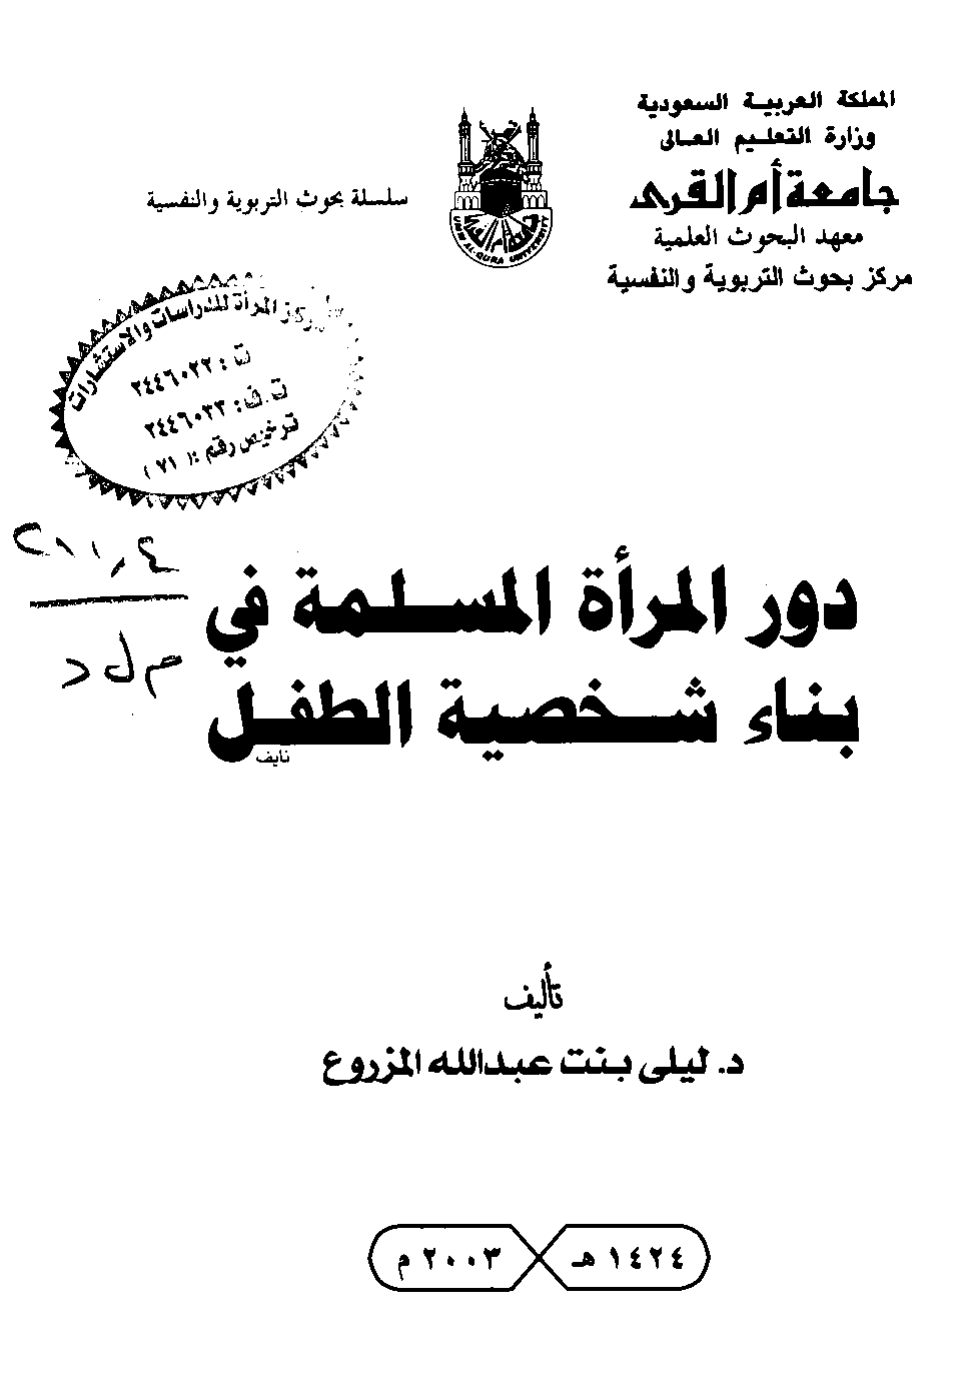 المملكة العربية السعودية
وزارة التعليم العالى
جامعة أم القرى
معهد البحوث العلمية
مركز بحوث التربوية والنفسية
جامعة أم القرى
UMM AL-QURA UNIVERSITY
سلسلة بحوث التربوية والنفسية
مركز المرأة للدراسات والاستشارات
ت : ٢٤٤٦٠٢٢
ت.ف : ٢٤٤٦٠٢٣
ترخيص رقم : ( ٧١ )
م ل د
دور المرأة المسلمة في
بناء شخصية الطفل
نايف
تأليف
د. ليلى بنت عبدالله المزروع
١٤٢٤ هـ
٢٠٠٣ م